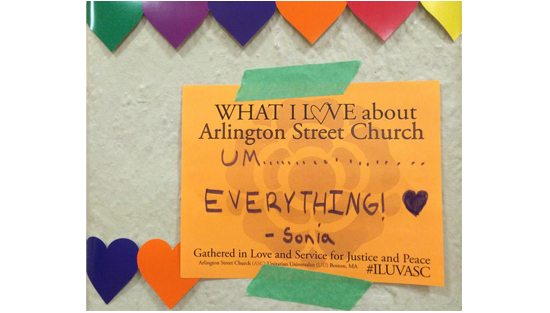 WHAT I LOVE about
Arlington Street Church
UM..................
EVERYTHING! ♥
- Sonia
Gathered in Love and Service for Justice and Peace
Arlington Street Church (ASC) Unitarian Universalist (UU) Boston, MA
#ILUVASC